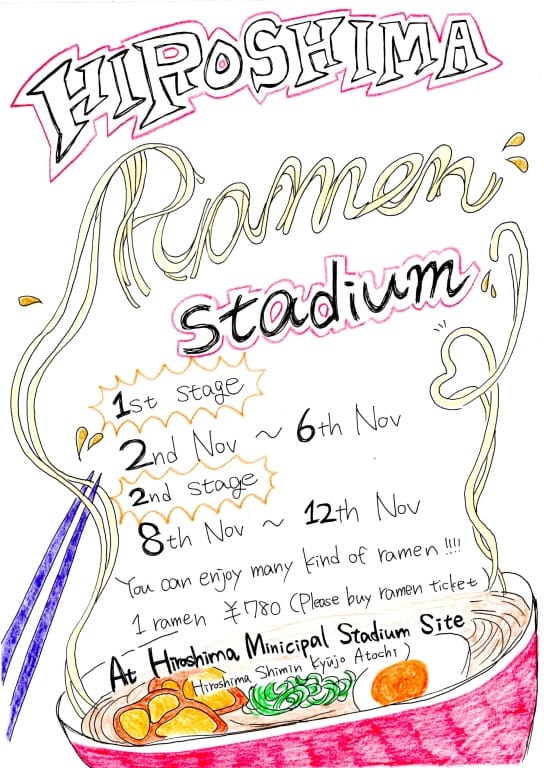 HIROSHIMA
Ramen
Stadium
1st stage
2nd Nov ~ 6th Nov
2nd stage
8th Nov ~ 12th Nov
You can enjoy many kind of ramen!!!!
1 ramen ¥780 (Please buy ramen ticket)
At Hiroshima Minicipal Stadium Site
(Hiroshima Shimin Kyujo Atochi)